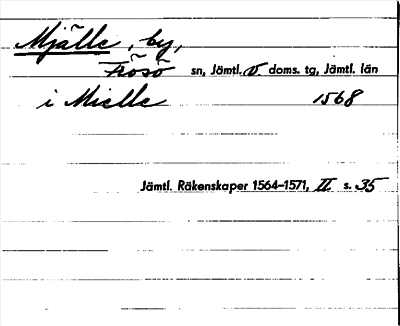 Mjälle, by,
Frösö sn, Jämtl. v. doms. tg, Jämtl. län
i Mielle 1568
Jämtl. Räkenskaper 1564–1571, II s. 35